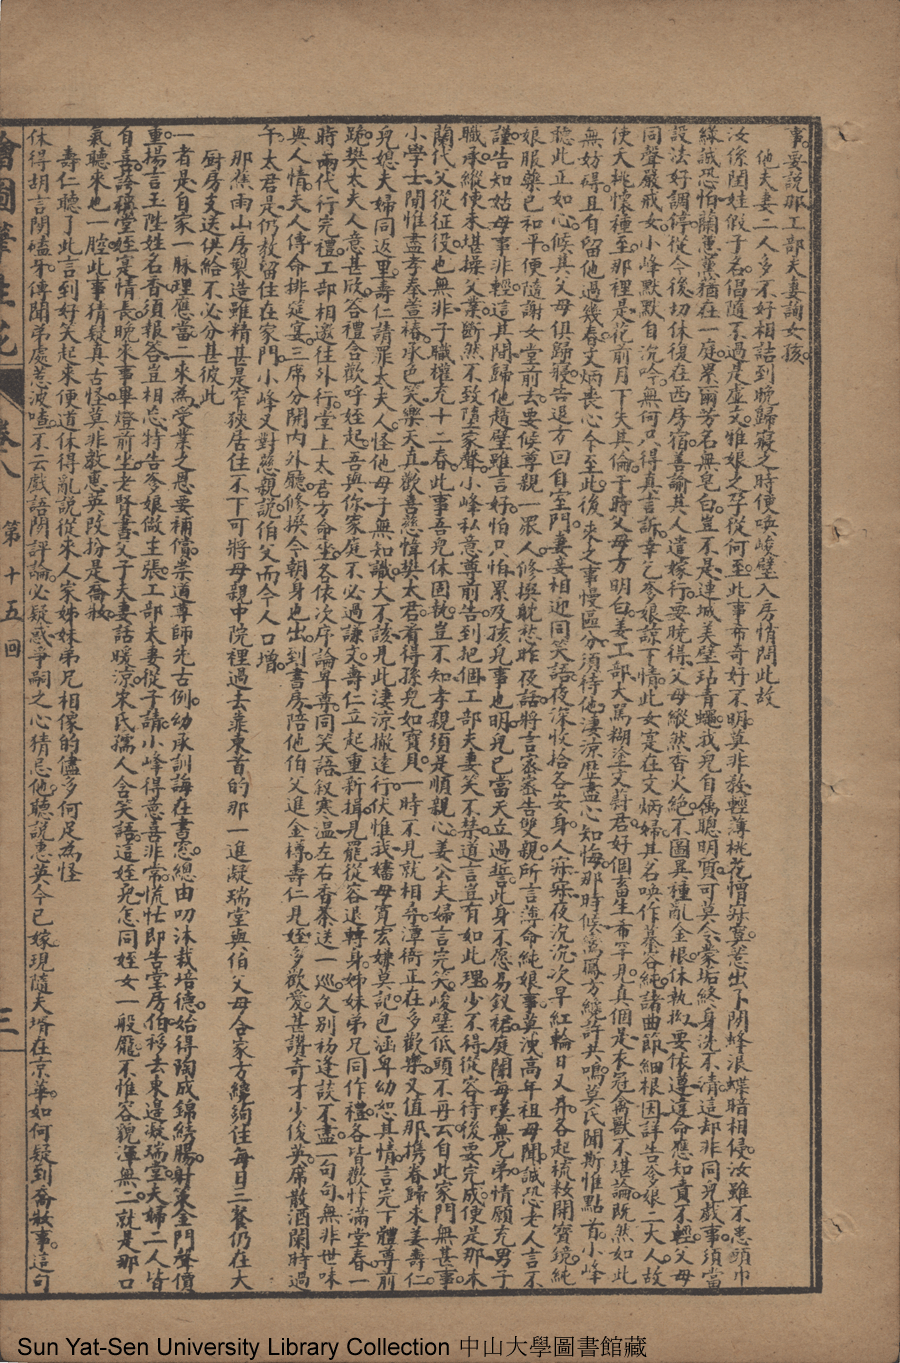 事。要說那工部夫妻詢女孩。
他夫妻二人多不好相詰到晚歸寢之時便喚峻璧入房悄問此故
汝係閨娃假子名倡隨不過是虛文雅娘之孕從何至此事希奇好不明莫非教輕薄桃花憎命寞意出下閉蜂浪蝶暗相侵汝雖不思頤巾
緣誠恐怕蘭蕙薰蕕在一庭累爾芳名無皂白豈不是連城美璧玷青蠅我兒自偶聰明質可莫令蒙垢終身洗不清這却非同兒戲事須當
設法好調停從今後切休復在西房宿善諭其人遣嫁行要曉得父母縱然香火絕不圖異種亂金根休執拗要依遵違命應知責不輕父母
同聲嚴戒女小峰默默自沉吟無何只得真言訴幸乞爹娘諒下情此女寔在文炳婦其名喚作慕容純諸曲節細根因詳告爹娘二大人故
使夭桃懷種至那裡是花前月下失其倫于時父母方明白姜工部大罵糊塗文蔚君好個畜生希罕見真個是衣冠禽獸不堪論既然如此
無妨碍且自留他過幾春文炳喪心今至此後來之事慢區分須待他淒涼歷盡心知悔那時候鸞鳳方纔許共鳴莫氏聞斯惟點首小峰
聽此正如心候其父母俱歸寢告退方回自室門妻妾相迎同笑語夜深收拾各安身人寐寐夜沉沉次早紅輪日又昇各起梳粧開寶鏡純
娘服藥已和平便隨謝女堂前去要候尊親一衆人修撰耽愁昨夜話將言密密告雙親所言薄命純娘事莫洩高年祖母聞誠恐老人言不
謹告知姑母事非輕這其間歸他趙璧雖言好怕只怕累及孩兒事也明兒已當天立過誓此身不愿易釵裙庭闈每嘆無兄弟情願充男子
職承縱使未堪操父業斷然不致墮家聲小峰私意尊前告到把個工部夫妻笑不禁道言豈有如此理少不得從容待後要完成便是那木
蘭代父從征役也無非子職權充十二春此事吾兒休固執豈不知孝親須是順親心姜公夫婦言完笑峻璧低頭不再云自此家門無甚事
小學士閒惟盡孝奉萱椿承色笑樂天真歡喜慈幃樊太君看得孫兒如寶貝一時不見就相尋潭衙正在多歡樂又值那携眷歸來姜壽仁
兒媳夫婦同返里壽仁請罪太夫人怪他母子無知識大不該見此淒涼撇達行伏惟我嬸母寬宏嫌莫記包涵卑幼恕其情言完下體尊前
跪樊太夫人意甚欣答禮合歡呼姪起吾與你家庭不必過謙文壽仁立起重新揖見罷從容退轉身姊妹弟兄同作禮各皆歡忭滿堂春一
時兩代行完禮工部相邀往外行堂上太君方命坐各依次序論卑尊同笑語叙寒温左右香茶送一巡久別初逢談不盡一句句無非世味
與人情夫人傳命排筵宴三席分開內外廳修撰今朝身也出到書房陪他伯父進金樽壽仁見姪多歡愛甚讚奇才少俊英席散酒闌時過
午太君是仍教留住在家門小峰又對慈親說伯父而今人口增
那蕉雨山房製造雖精甚是窄狹居住不下可將母親中院裡過去葉東首的那一進凝瑞堂與伯父母合家方纔夠住每日三餐仍在大
厨房支送供給不必分甚彼此
一者是自家一脉理應當二來為受業之恩要補償崇道尊師先古例幼承訓誨在書窻總由叨沐栽培德始得陶成錦綉腸射策金門聲價
重揚言玉陛姓名香須報答豈相忘特告爹娘做主張工部夫妻從子請小峰得意喜非常慌忙即告堂房伯移去東邊凝瑞堂夫婦二人皆
自喜誇穪堂姪寔情長晚來事畢燈前坐老賢書父子夫妻話暖涼宋氏孺人含笑語這姪兒怎同姪女一般龎不惟容貌渾無二就是那口
氣聽來也一腔此事猜疑真古怪莫非敢蕙英改扮是喬粧
壽仁聽了此言到好笑起來便道休得亂說從來人家姊妹弟兄相像的儘多何足為怪
休得胡言閒嗑牙傳聞弟處惹波喳不云戲語閒評論必疑惑爭嗣之心猜忌他聽說蕙英今已嫁現隨夫壻在京華如何疑到喬妝事這句
繪圖筆生花 卷八 第十五回 三
Sun Yat-Sen University Library Collection 中山大學圖書館藏